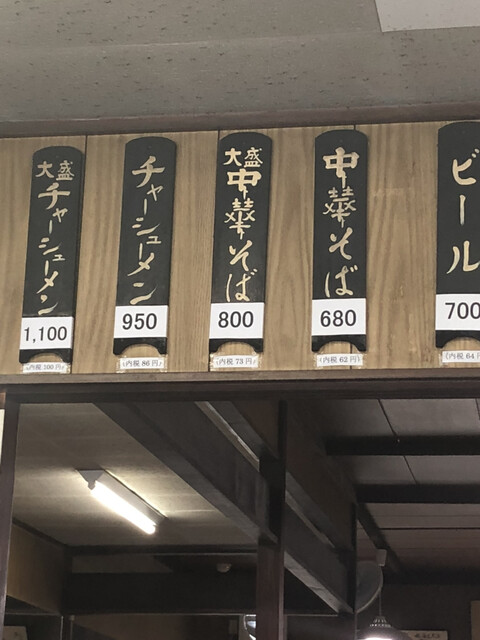 ビール
700
(内税 64円)
中華そば
680
(内税 62円)
大盛
中華そば
800
(内税 73円)
チャーシューメン
950
(内税 86円)
大盛
チャーシューメン
1,100
(内税 100円)